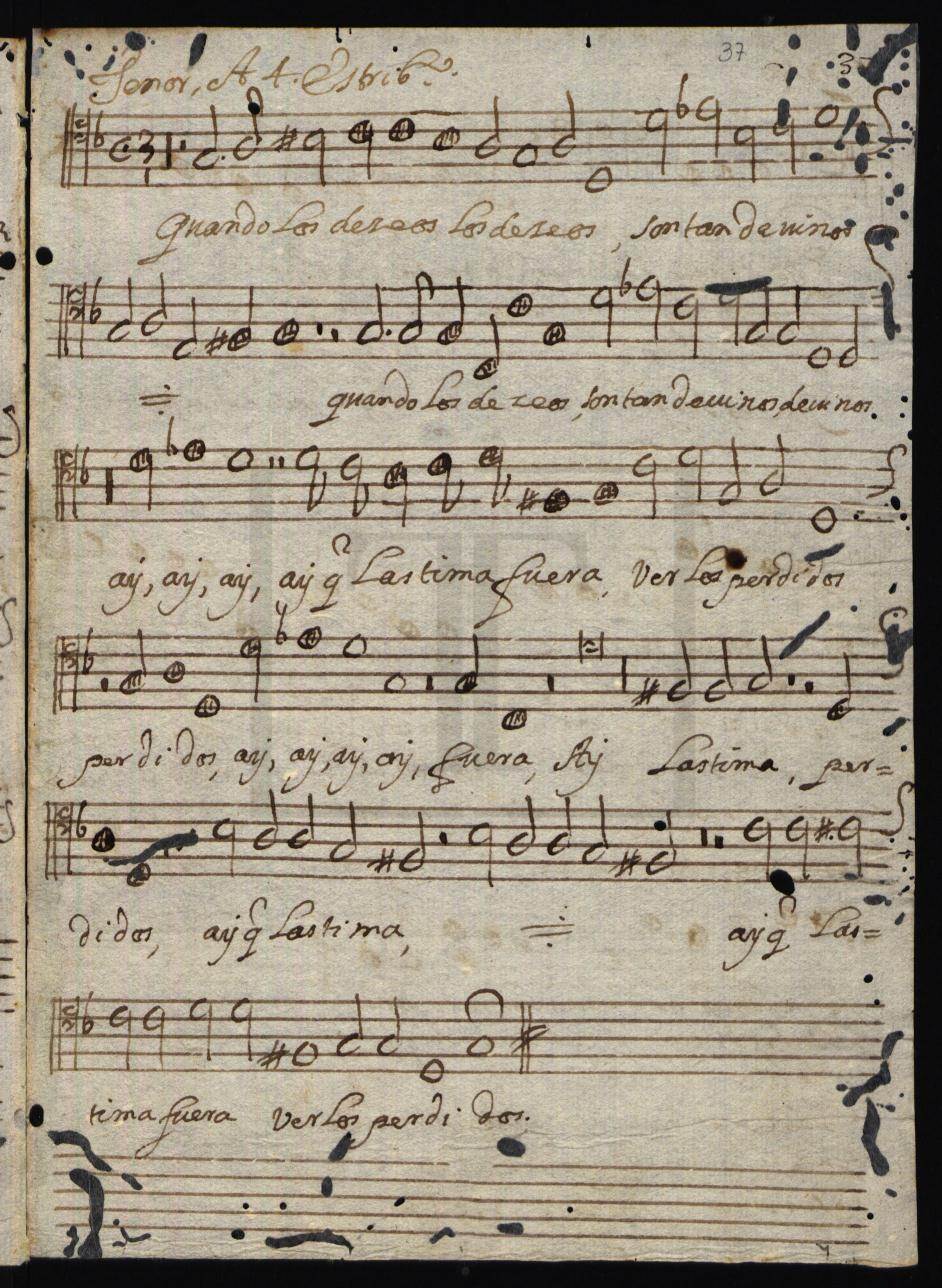 37
Tenor, A 4. Estribo.
Quando los deseos los deseos, son tan devinos
quando los deseos, son tan devinos devinos.
ay, ay, ay, ay q̃ Lastima fuera, Ver los perdidos
perdidos, ay, ay, ay, ay, fuera, Ay Lastima, per=
didos, ay q̃ Lastima, ay q̃ Las=
tima fuera Ver los perdi dos.